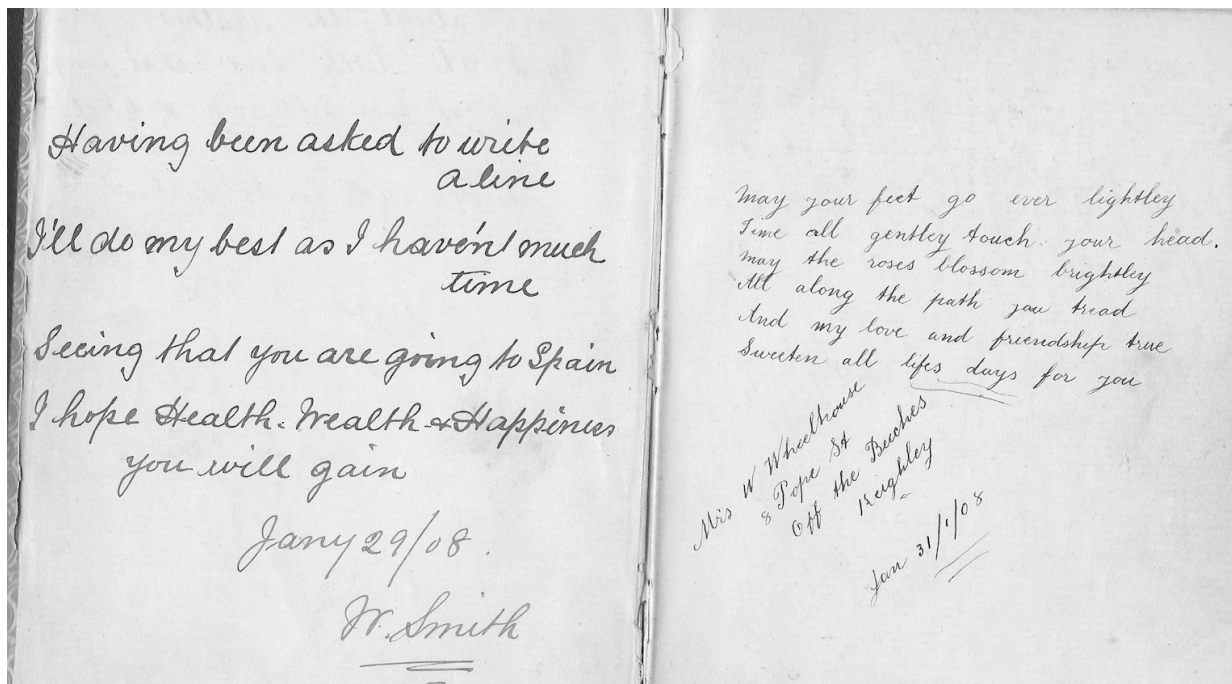 Having been asked to write
a line
I'll do my best as I haven't much
time
Seeing that you are going to Spain
I hope Health. Wealth & Happiness
you will gain
Jany 29/08.
W. Smith
May your feet go ever lightley
Time all gentley touch your head.
May the roses blossom brightley
All along the path you tread
And my love and friendship true
Sweeten all lifes days for you
Mrs W Wheelhouse
8 Pope St
Off the Beeches
Keighley
Jan 31/1/08